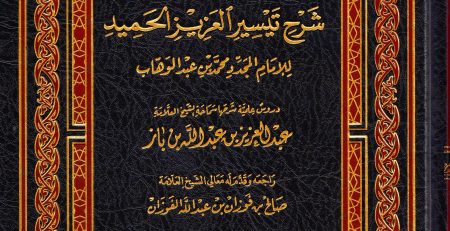 شَرْحُ تَيْسِيرِ الْعَزِيزِ الْحَمِيدِ
لِلإِمَامِ المُجَدِّدِ مُحَمَّد بْن عَبْدِ الْوَهَّابِ
دروس علمية شرحها سماحة الشيخ العلامة
عبد العزيز بن عبد الله بن باز
راجعه وقدم له معالي الشيخ العلامة
صالح بن فوزان بن عبد الله الفوزان